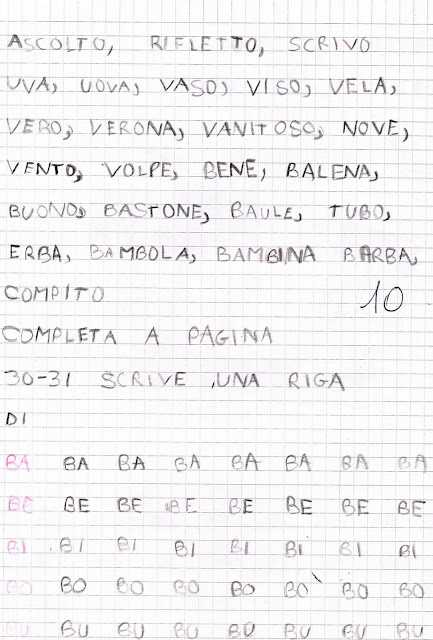 ASCOLTO, RIFLETTO, SCRIVO
UVA, UOVA, VASO, VISO, VELA,
VERO, VERONA, VANITOSO, NOVE,
VENTO, VOLPE, BENE, BALENA,
BUONO, BASTONE, BAULE, TUBO,
ERBA, BAMBOLA, BAMBINA BARBA,
COMPITO 10
COMPLETA A PAGINA
30-31 SCRIVE ,UNA RIGA
DI
BA BA BA BA BA BA BA BA
BE BE BE BE BE BE BE BE
BI BI BI BI BI BI BI BI
BO BO BO BO BO BO BO BO
BU BU BU BU BU BU BU BU